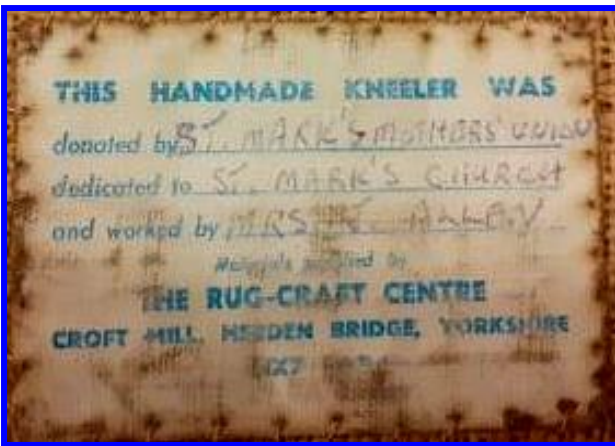 THIS HANDMADE KNEELER WAS
donated by ST. MARK'S MOTHERS' UNION
dedicated to ST. MARK'S CHURCH
and worked by MRS. ALLEY
Materials supplied by
THE RUG-CRAFT CENTRE
CROFT MILL, HEBDEN BRIDGE, YORKSHIRE
HX7